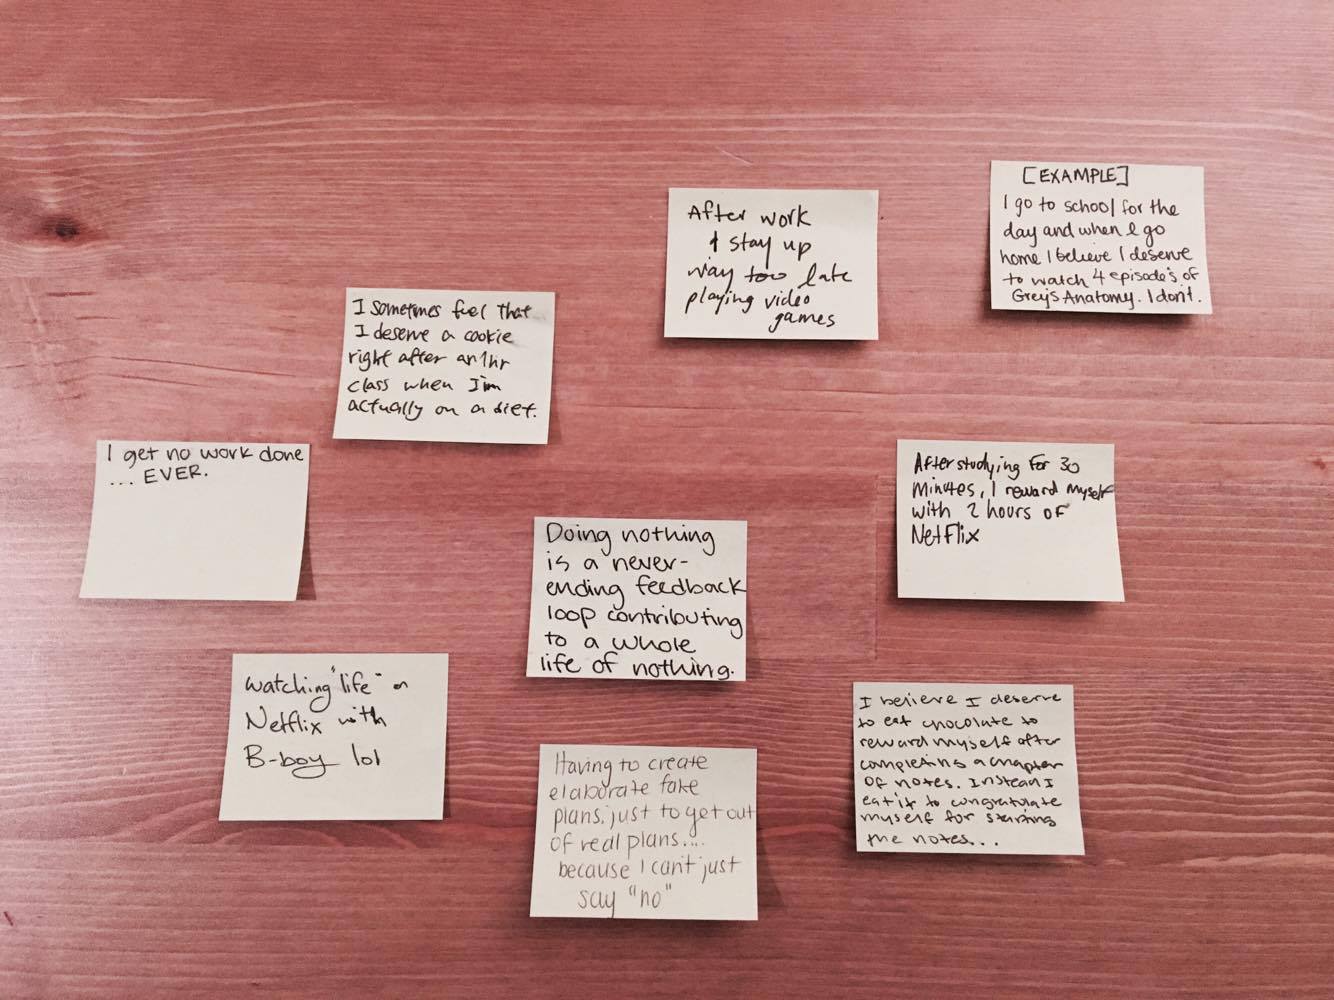 [EXAMPLE]
I go to school for the
day and when I go
home I believe I deserve
to watch 4 episode's of
Grey's Anatomy. I don't.
After work
I stay up
way too late
playing video
games
I sometimes feel that
I deserve a cookie
right after an 1hr
class when I'm
actually on a diet.
I get no work done
... EVER.
After studying for 30
minutes, I reward myself
with 2 hours of
Netflix
Doing nothing
is a never-
ending feedback
loop contributing
to a whole
life of nothing.
watching "life" on
Netflix with
B-boy lol
I believe I deserve
to eat chocolate to
reward myself after
completing a chapter
of notes. Instead I
eat it to congratulate
myself for starting
the notes...
Having to create
elaborate fake
plans. just to get out
of real plans....
because I can't just
say "no"